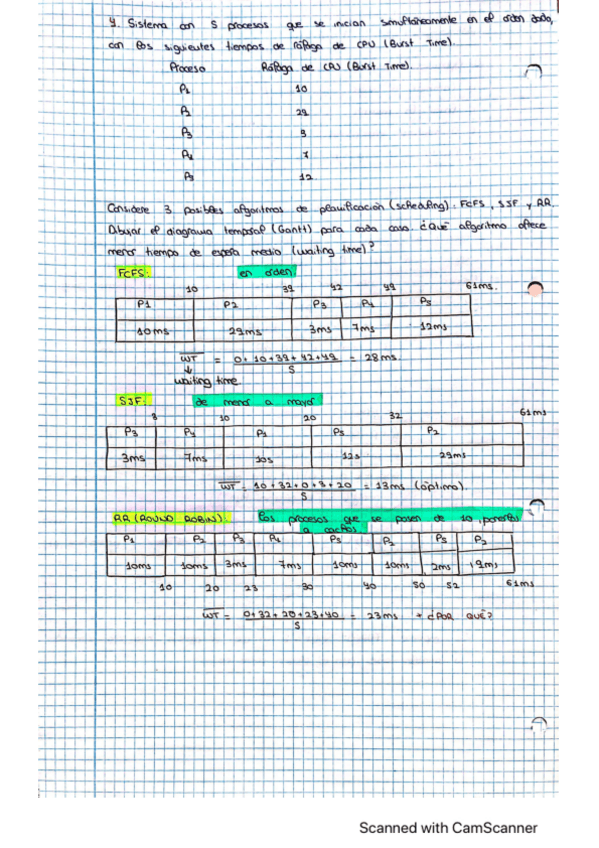 4. Sistema con 5 procesos que se inician simultáneamente en el orden dado,
con los siguientes tiempos de ráfaga de CPU (Burst Time).
Proceso Ráfaga de CPU (Burst Time).
P1 10
P2 29
P3 3
P4 7
P5 12
Considere 3 posibles algoritmos de planificación (scheduling): FCFS, SJF y RR.
Dibujar el diagrama temporal (Gantt) para cada caso. ¿Qué algoritmo ofrece
menor tiempo de espera medio (waiting time)?
FCFS: en orden
10 39 42 49 61ms.
P1 P2 P3 P4 P5
10ms 29ms 3ms 7ms 12ms
WT = 0+10+39+42+49 / 5 = 28ms.
↓
waiting time
SJF: de menor a mayor
3 10 20 32 61ms
P3 P4 P1 P5 P2
3ms 7ms 10s 12s 29ms
WT = 10+32+0+3+20 / 5 = 13ms (óptimo).
RR (ROUND ROBIN): los procesos que se pasen de 10, ponerlos
a cachos.
P1 P2 P3 P4 P5 P2 P5 P2
10ms 10ms 3ms 7ms 10ms 10ms 2ms 9ms
10 20 23 30 40 50 52 61ms
WT = 0+32+20+23+40 / 5 = 23ms + ¿POR QUÉ?
Scanned with CamScanner